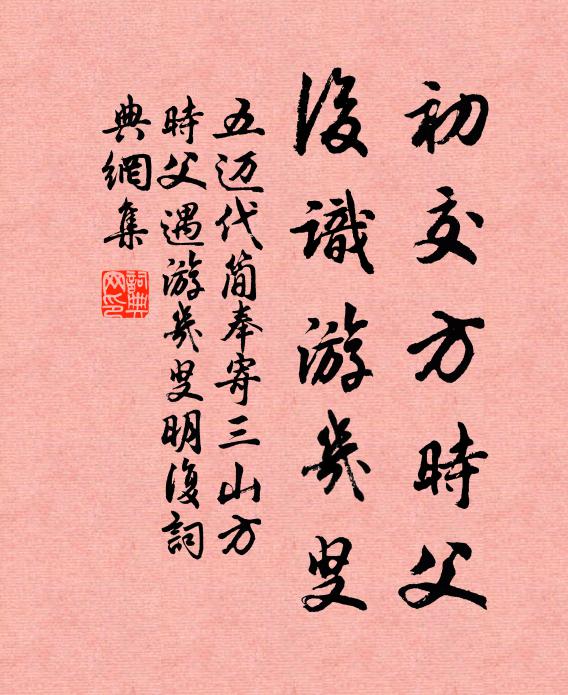 初交方時父
後識游幾叟
五迈代简奉寄三山方
時父遇游幾叟明復詞
典網集
詞典網印